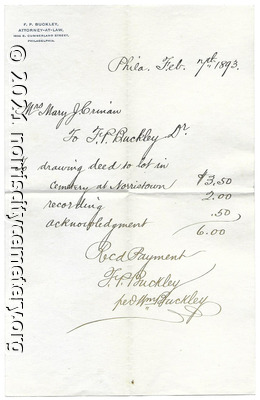 F. P. BUCKLEY,
ATTORNEY-AT-LAW,
PHILADELPHIA.
Phila. Feb. 7th 1893.
Mrs Mary J. Crinian
To F. P. Buckley Dr.
drawing deed to lot in
cemetery at Norristown $3.50
recording 2.00
acknowledgment .50
6.00
Recd Payment
F. P. Buckley
per Wm Buckley
© 2021, norriscitycemetery.org